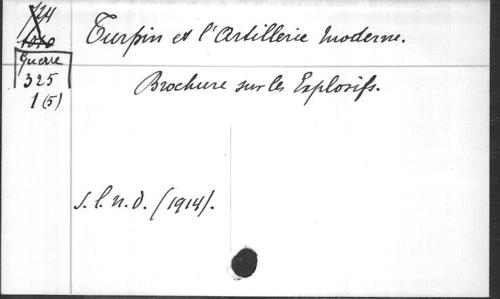 Turpin et l'Artillerie moderne.
Guerre
325
1 (5)
Brochure sur les Explosifs.
s.l.n.d. (1914).